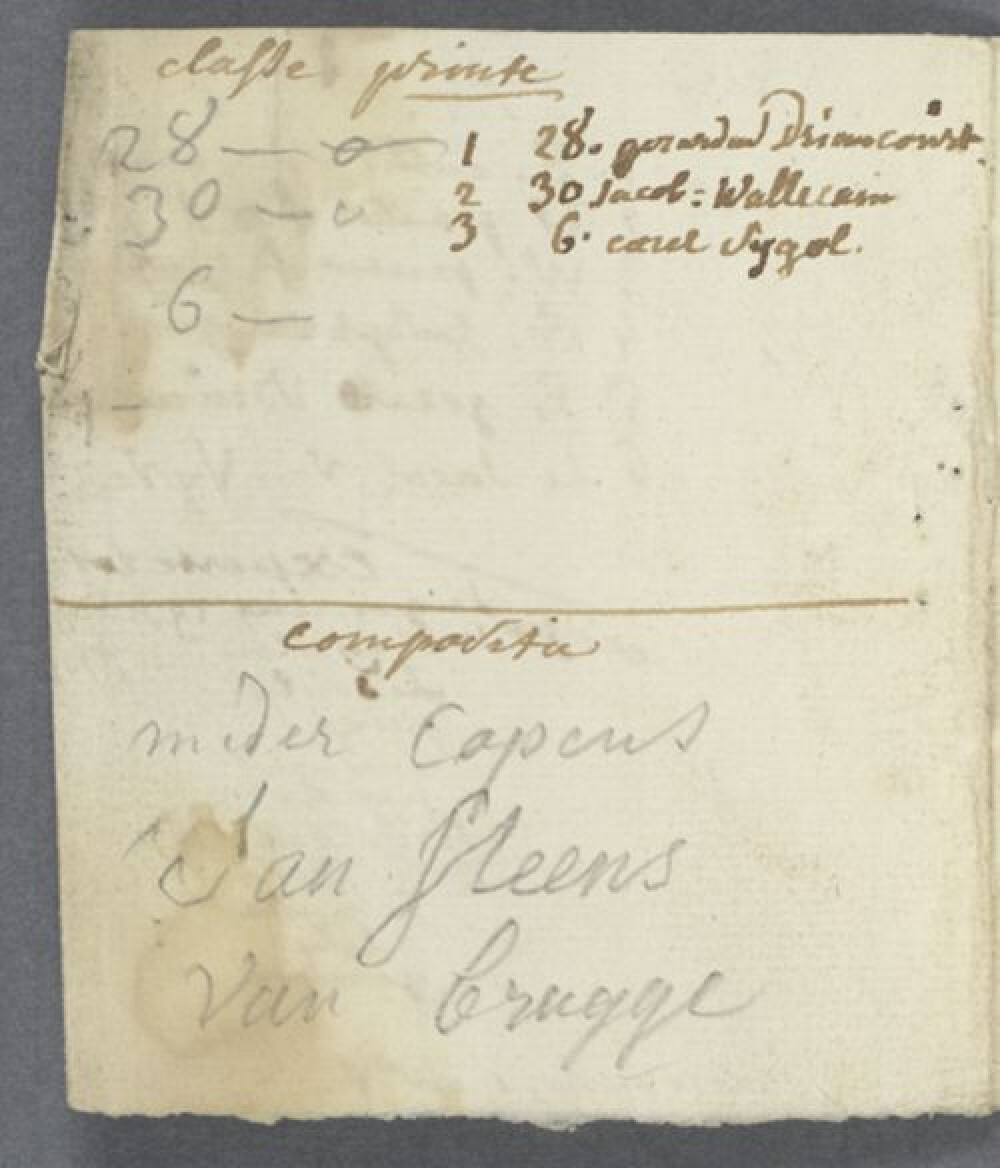 classe printe
28 — o — 1 28. gerardus Driancourt.
30 — o 2 30 Jacob = Wallecam
3 6. carel Sygol.
6 —
compositie
mider Capens
Jan Steens
Van brugge